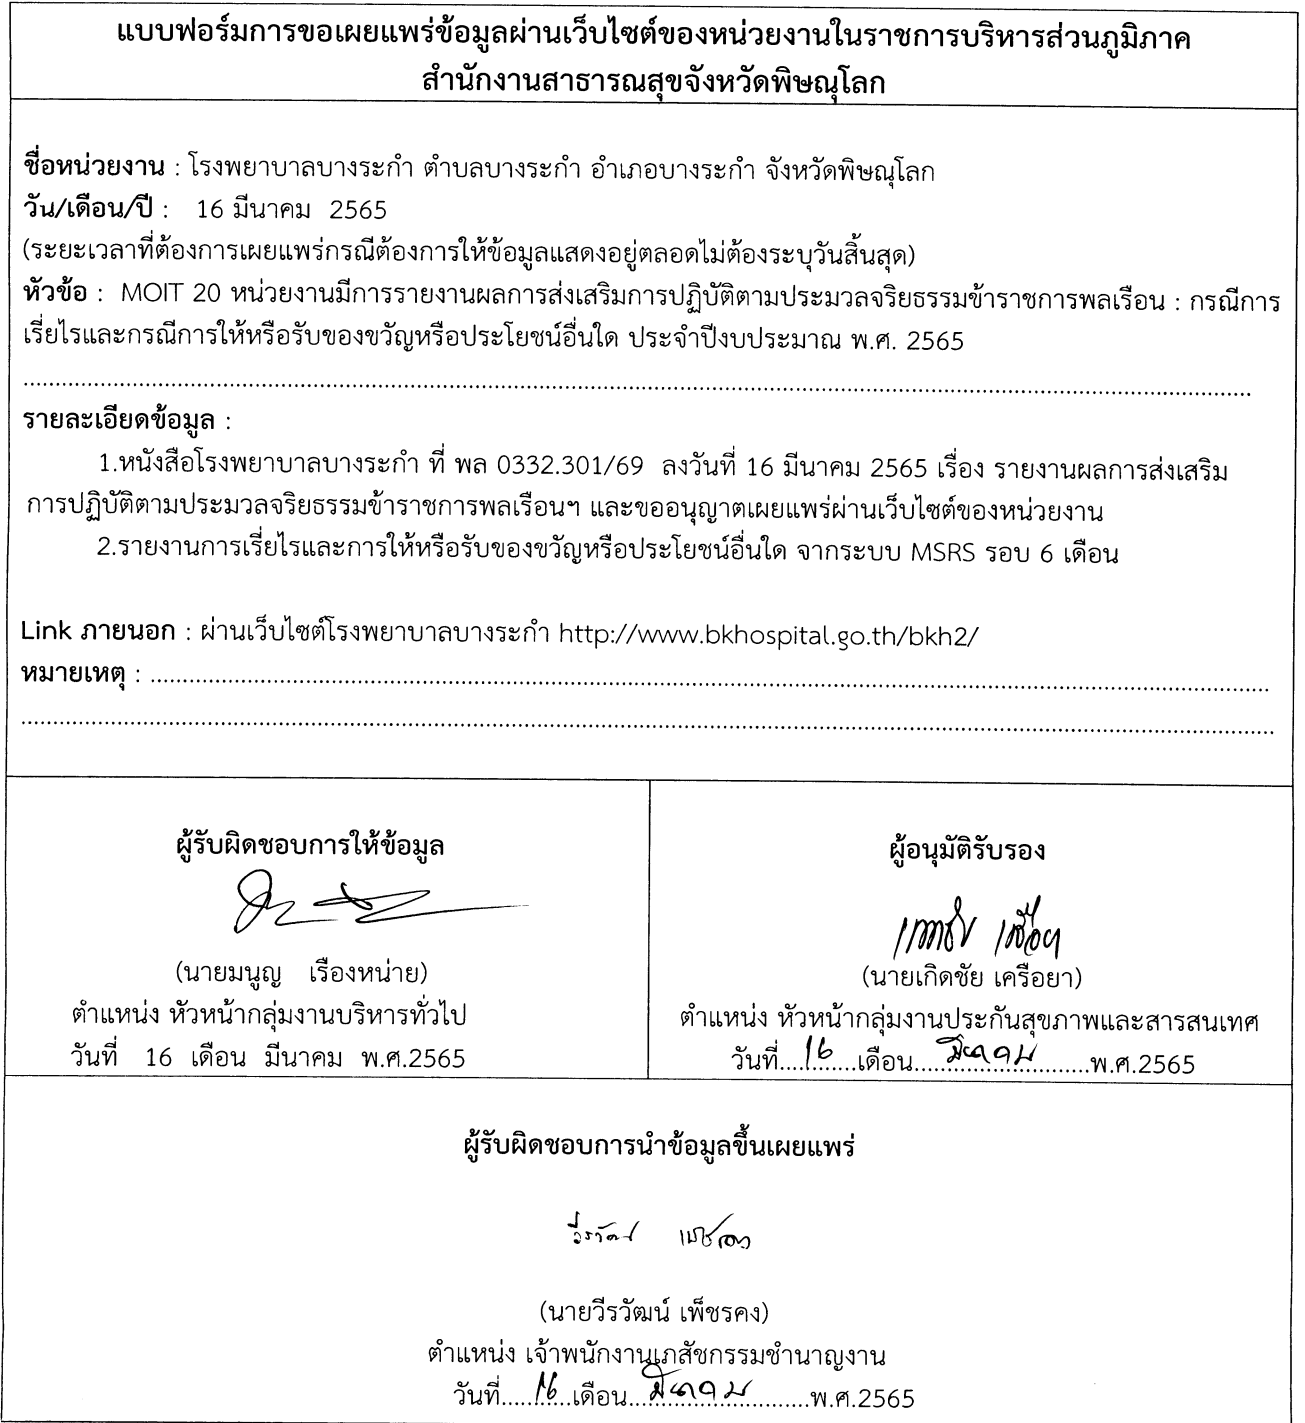 แบบฟอร์มการขอเผยแพร่ข้อมูลผ่านเว็บไซต์ของหน่วยงานในราชการบริหารส่วนภูมิภาค
สำนักงานสาธารณสุขจังหวัดพิษณุโลก
ชื่อหน่วยงาน : โรงพยาบาลบางระกำ ตำบลบางระกำ อำเภอบางระกำ จังหวัดพิษณุโลก
วัน/เดือน/ปี : 16 มีนาคม 2565
(ระยะเวลาที่ต้องการเผยแพร่กรณีต้องการให้ข้อมูลแสดงอยู่ตลอดไม่ต้องระบุวันสิ้นสุด)
หัวข้อ : MOIT 20 หน่วยงานมีการรายงานผลการส่งเสริมการปฏิบัติตามประมวลจริยธรรมข้าราชการพลเรือน : กรณีการ
เรี่ยไรและกรณีการให้หรือรับของขวัญหรือประโยชน์อื่นใด ประจำปีงบประมาณ พ.ศ. 2565
รายละเอียดข้อมูล :
1.หนังสือโรงพยาบาลบางระกำ ที่ พล 0332.301/69 ลงวันที่ 16 มีนาคม 2565 เรื่อง รายงานผลการส่งเสริม
การปฏิบัติตามประมวลจริยธรรมข้าราชการพลเรือนฯ และขออนุญาตเผยแพร่ผ่านเว็บไซต์ของหน่วยงาน
2.รายงานการเรี่ยไรและการให้หรือรับของขวัญหรือประโยชน์อื่นใด จากระบบ MSRS รอบ 6 เดือน
Link ภายนอก : ผ่านเว็บไซต์โรงพยาบาลบางระกำ http://www.bkhospital.go.th/bkh2/
หมายเหตุ :
ผู้รับผิดชอบการให้ข้อมูล
(นายมนูญ เรืองหน่าย)
ตำแหน่ง หัวหน้ากลุ่มงานบริหารทั่วไป
วันที่ 16 เดือน มีนาคม พ.ศ.2565
ผู้อนุมัติรับรอง
(นายเกิดชัย เครือยา)
ตำแหน่ง หัวหน้ากลุ่มงานประกันสุขภาพและสารสนเทศ
วันที่....16......เดือน.....มีนาคม.....พ.ศ.2565
ผู้รับผิดชอบการนำข้อมูลขึ้นเผยแพร่
วีรวัฒน์ เพ็ชรคง
(นายวีรวัฒน์ เพ็ชรคง)
ตำแหน่ง เจ้าพนักงานเภสัชกรรมชำนาญงาน
วันที่.....16....เดือน...มีนาคม.....พ.ศ.2565